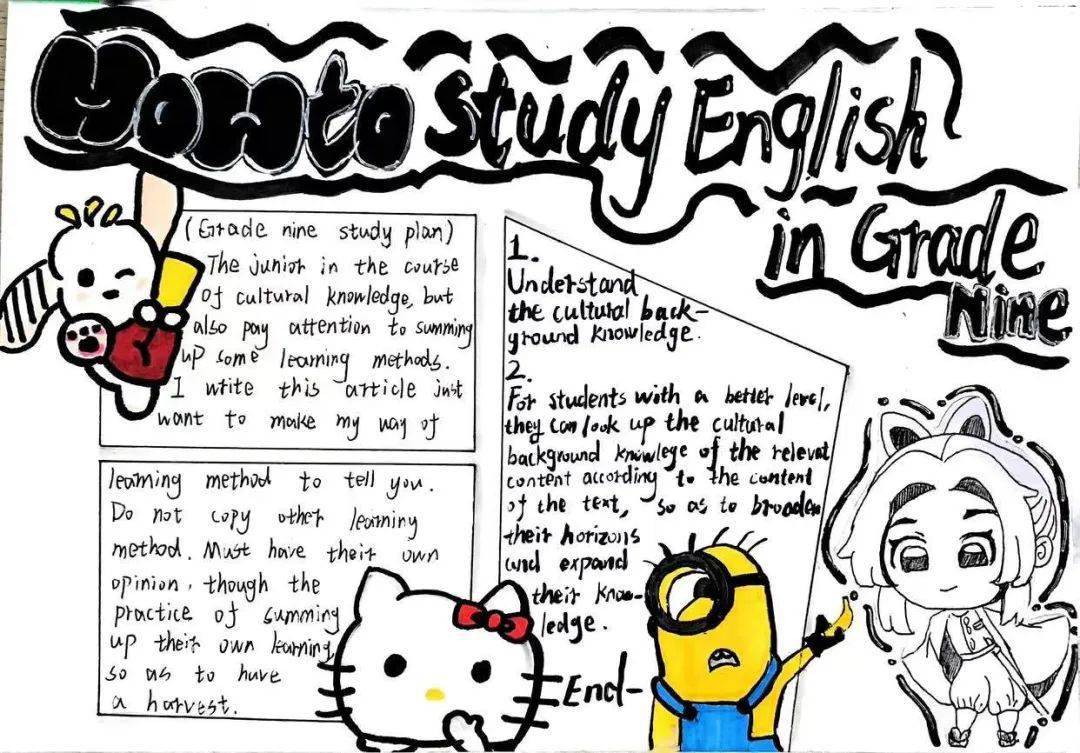 How to Study English
in Grade
Nine
(Grade nine study plan)
The junior in the course
of cultural knowledge, but
also pay attention to summing
up some learning methods.
I write this article just
want to make my way of
learning method to tell you.
Do not copy other learning
method. Must have their own
opinion, though the
practice of summing
up their own learning,
so as to have
a harvest.
1.
Understand
the cultural back-
ground knowledge.
2.
For students with a better level,
they can look up the cultural
background knowlege of the relevat
content according to the content
of the text, so as to broaden
their horizons
and expand
their know-
ledge.
End-